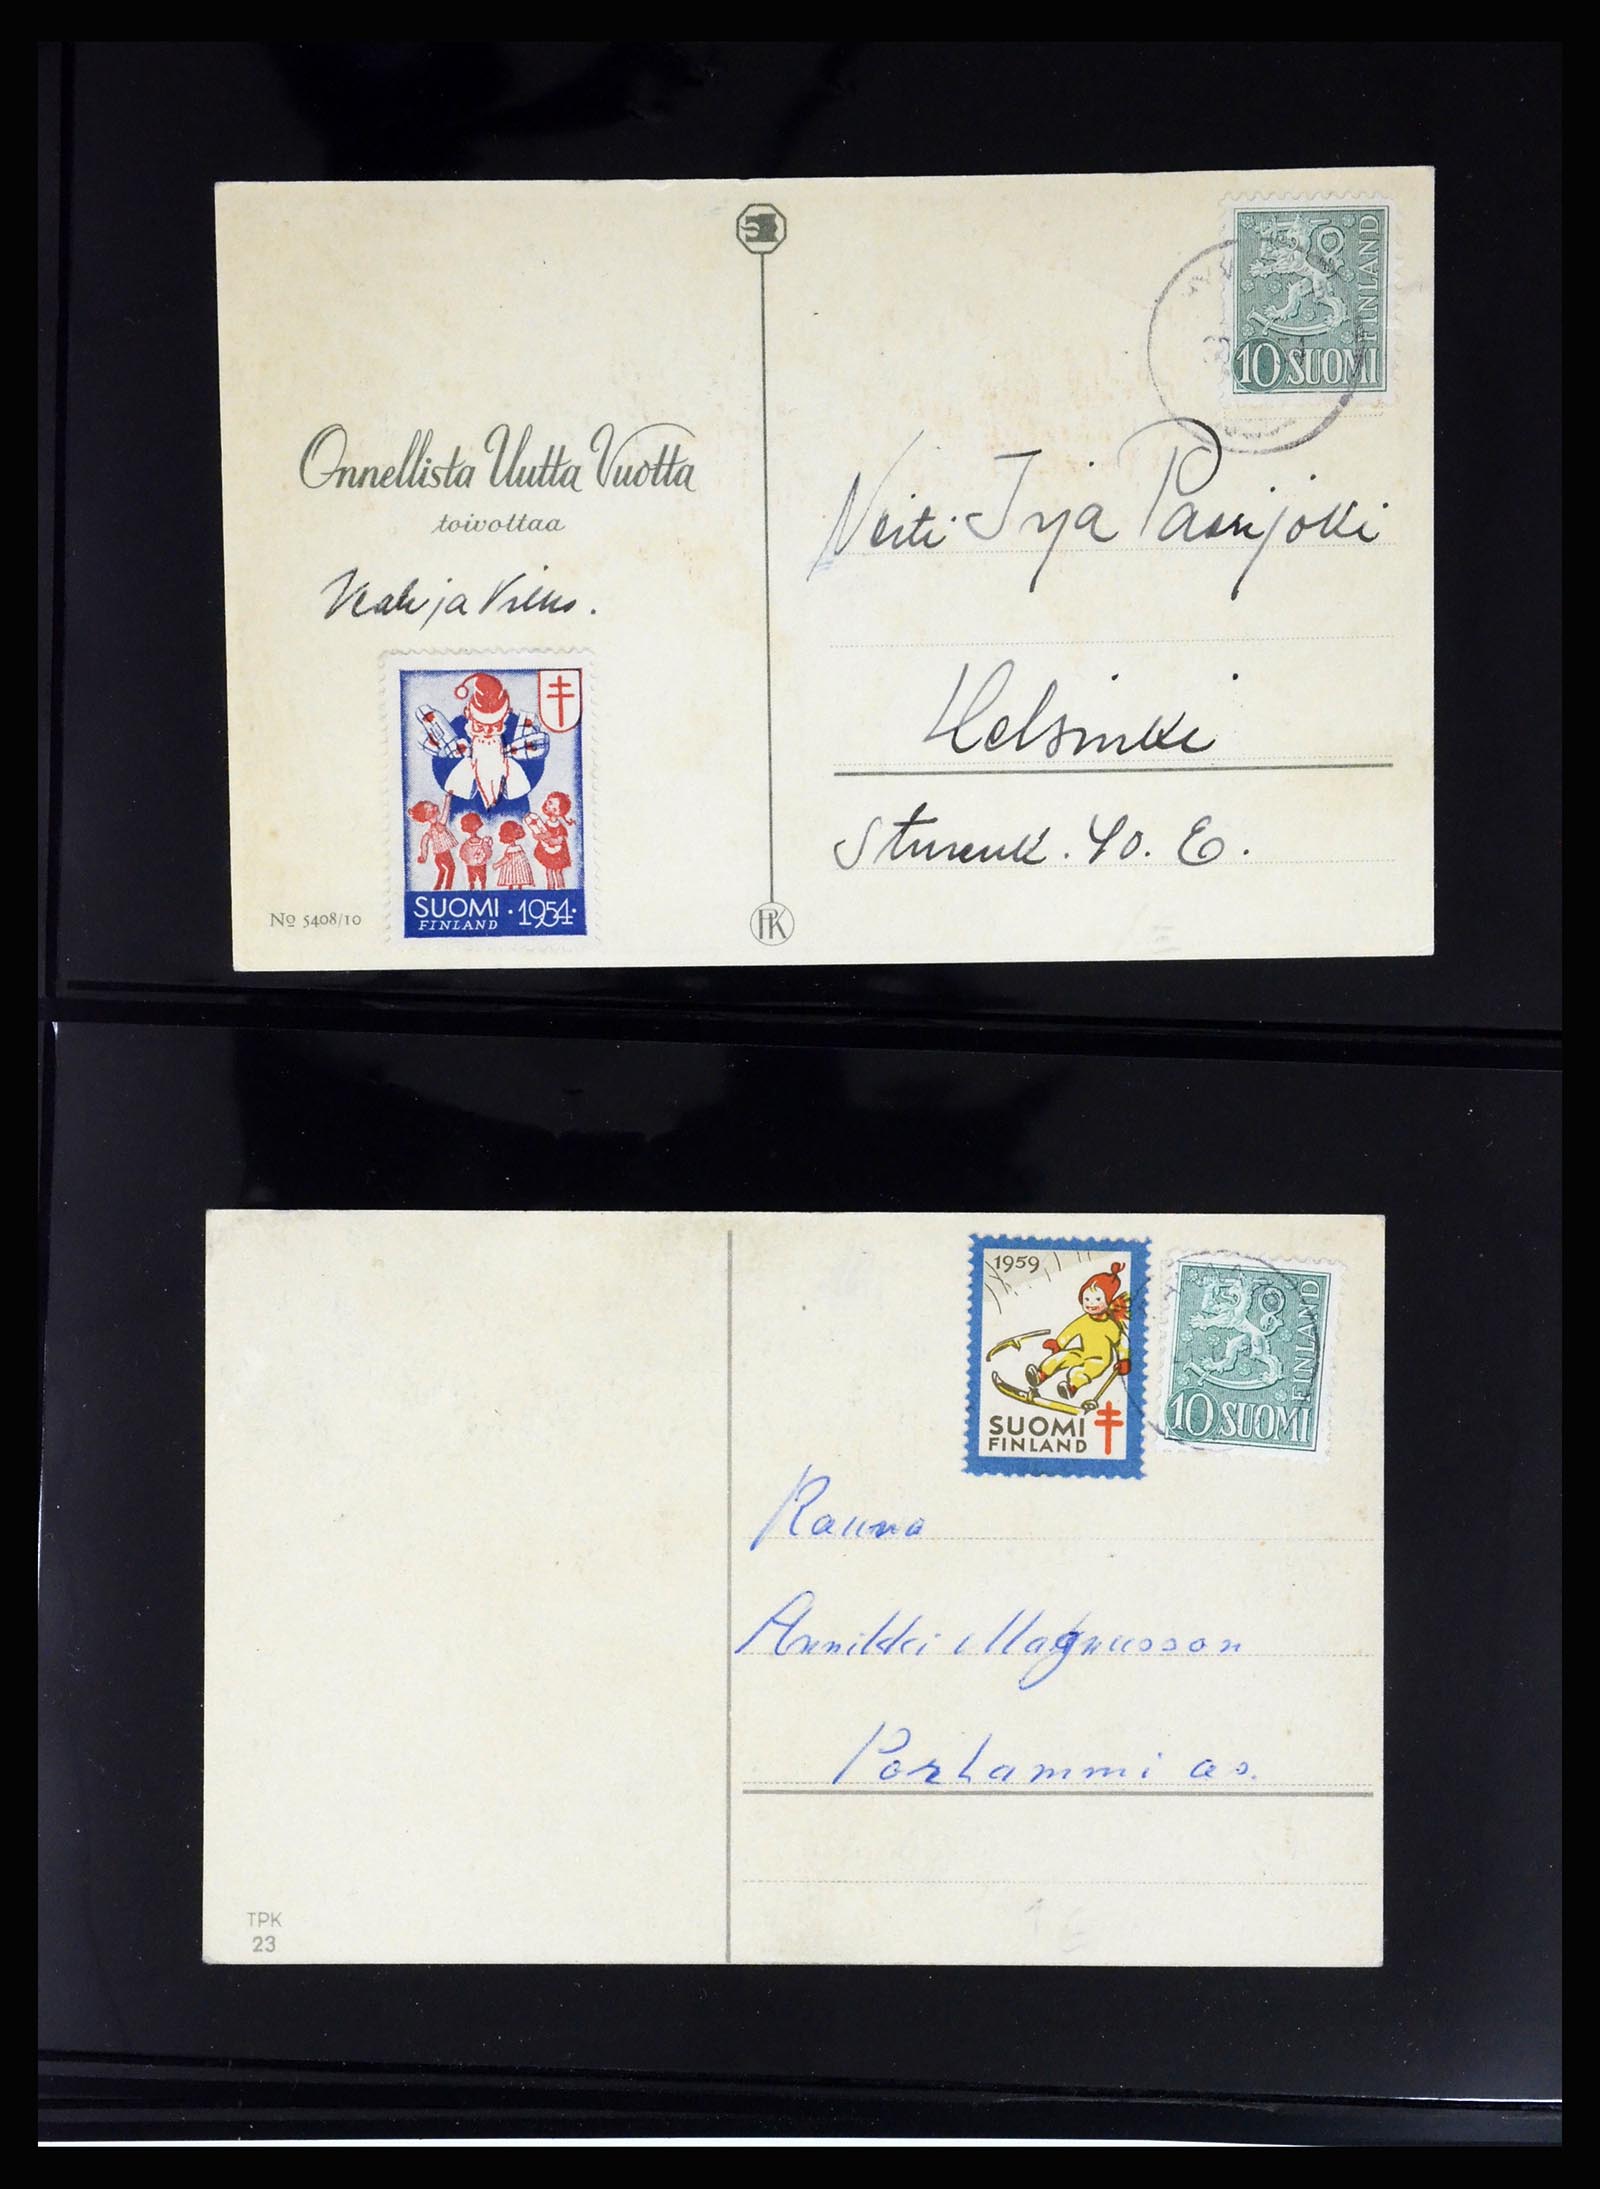 10 SUOMI
FINLAND
Onnellista Uutta Vuotta
toivottaa
ja
Neiti Irja
Helsinki
40. E.
SUOMI · 1954 ·
FINLAND
Nº 5408/10
PK
1959
SUOMI
FINLAND
10 SUOMI
FINLAND
Rauno
Annikki Magnusson
Porhammi as.
TPK
23